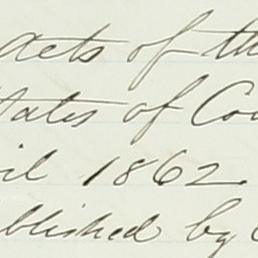 Acts of th
tates of Con
il 1862.
blished by C